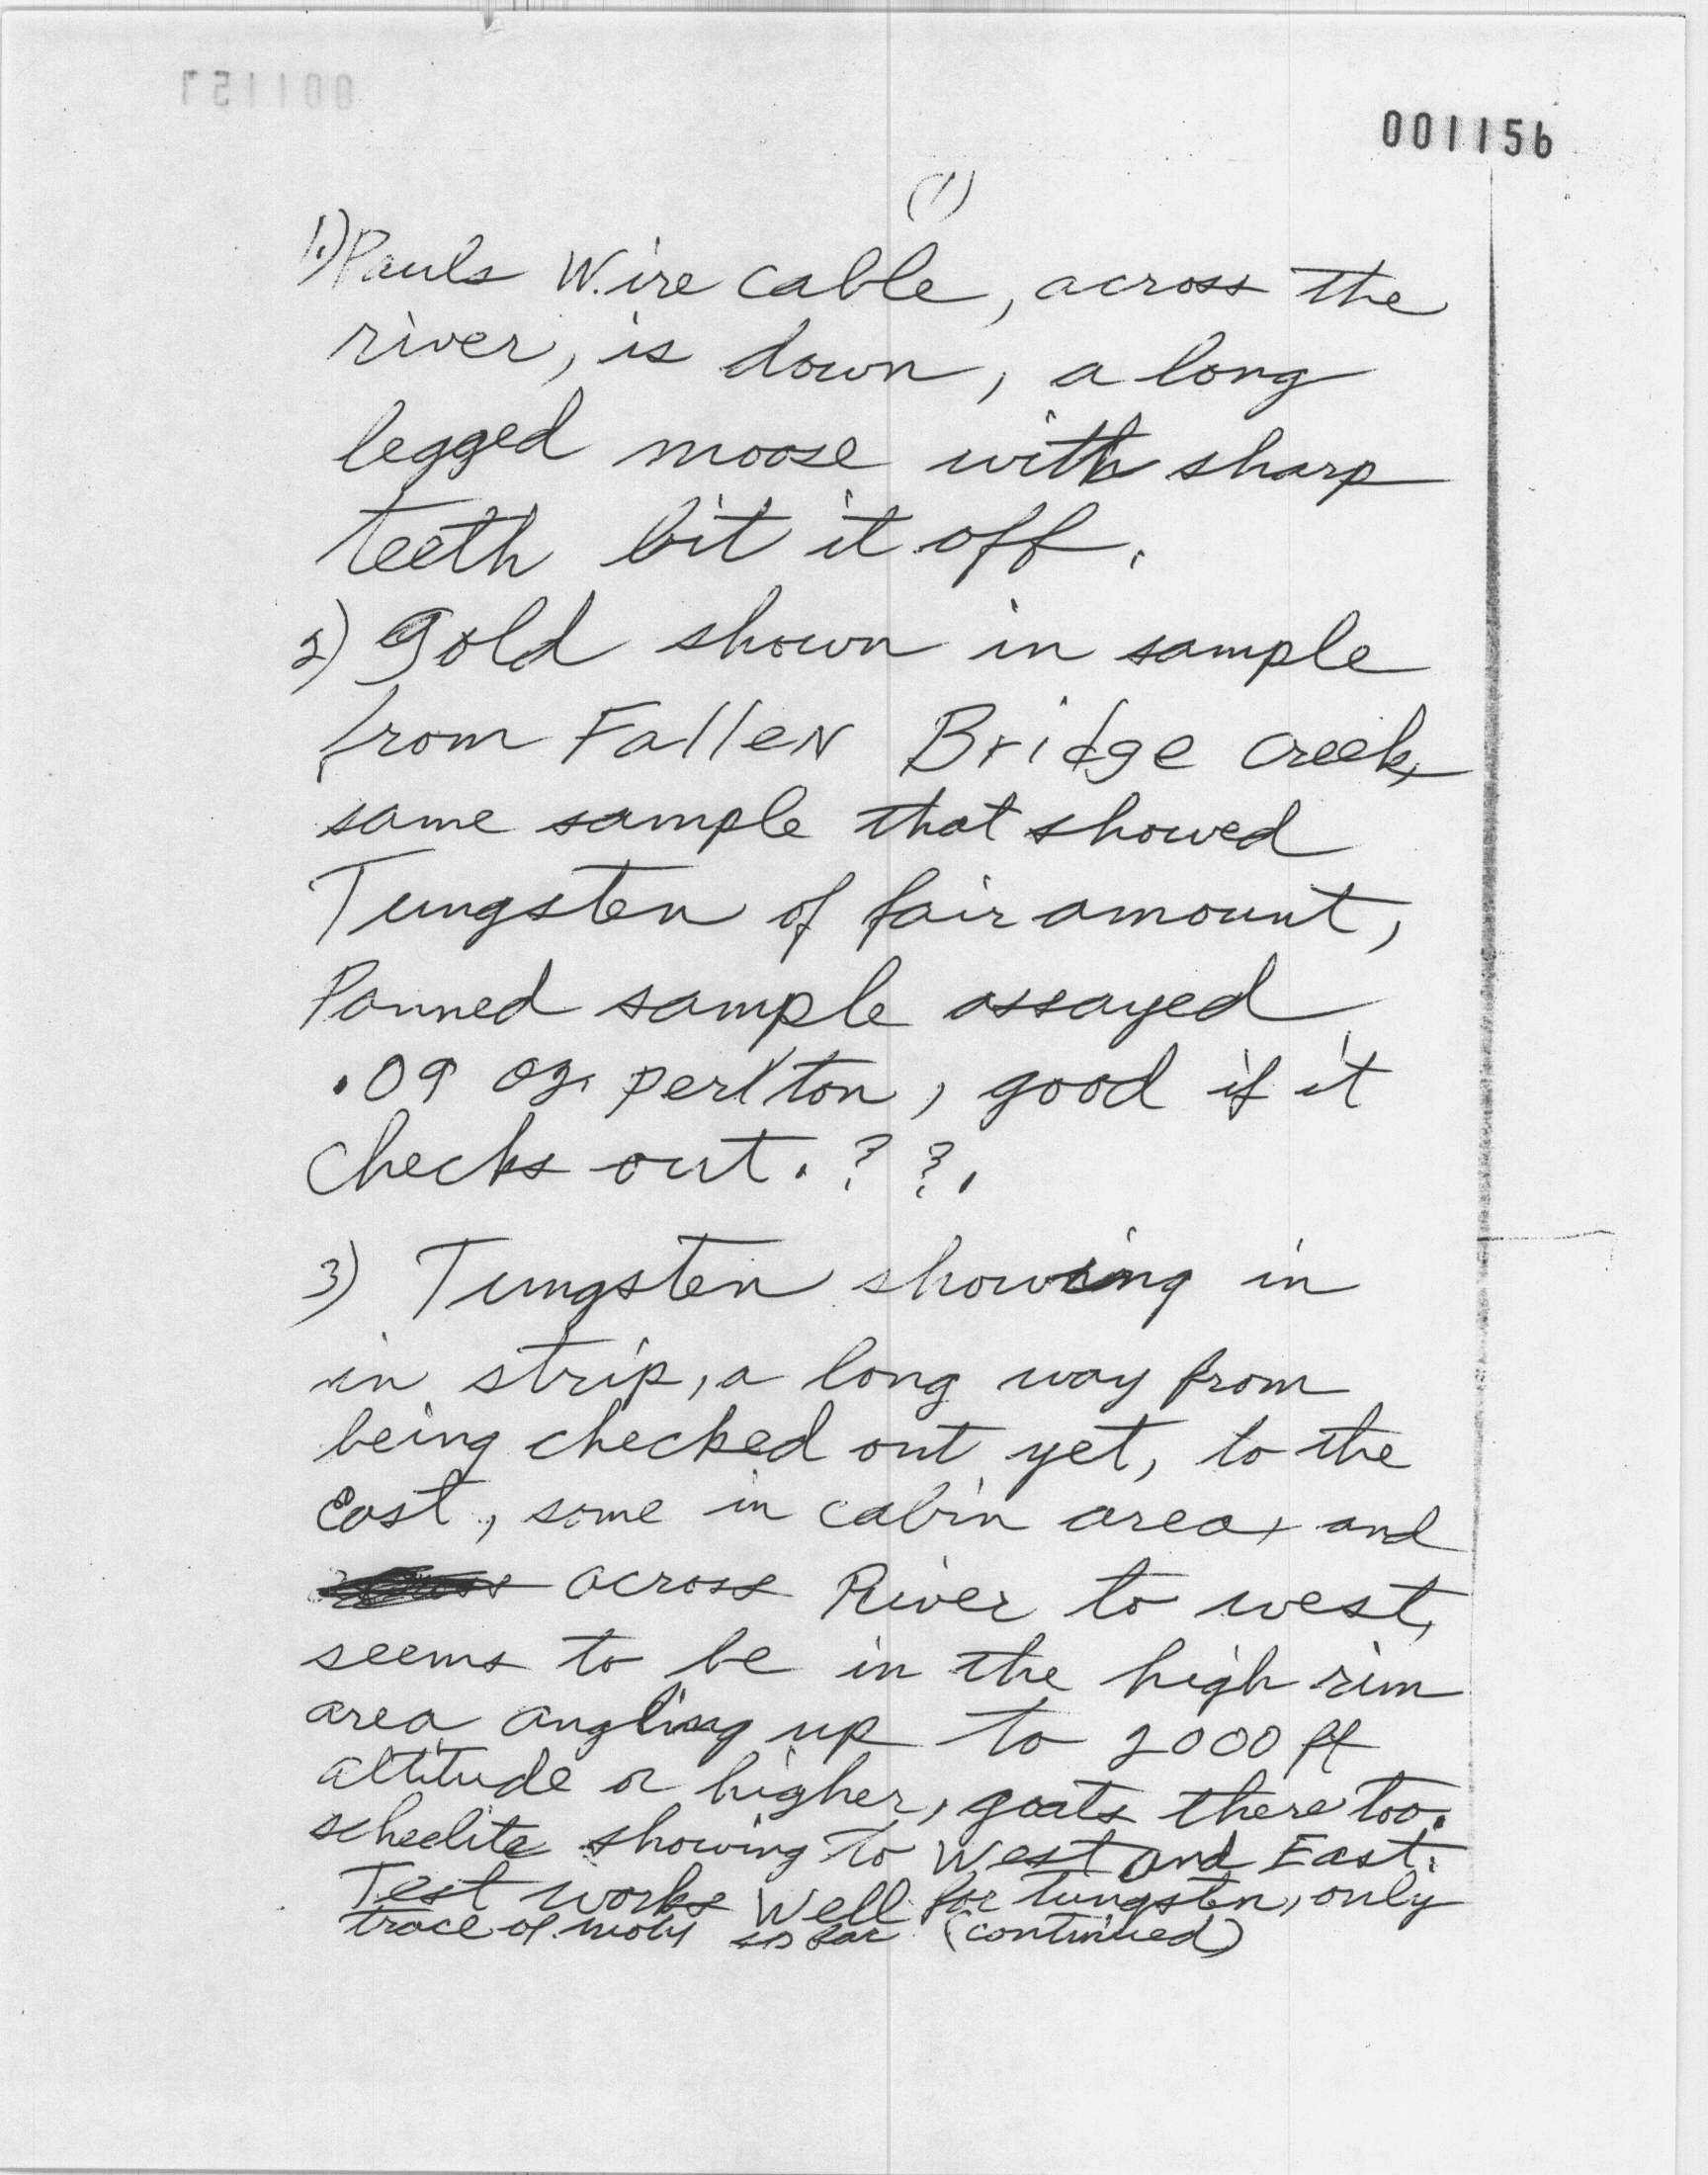 001157
001156
(1)
1.) Pauls Wire cable, across the
river, is down, a long
legged moose with sharp
teeth bit it off.
2) Gold shown in sample
from Fallen Bridge Creek,
same sample that showed
Tungsten of fair amount,
Panned sample assayed
.09 oz. per ton, good if it
checks out. ? ?.
3) Tungsten showing in
in strip, a long way from
being checked out yet, to the
East, some in cabin area, and
across River to west,
seems to be in the high rim
area angling up to 2000 ft
altitude or higher, goats there too.
scheelite showing to West and East.
Test works Well for tungsten, only
trace of moly so far (continued)